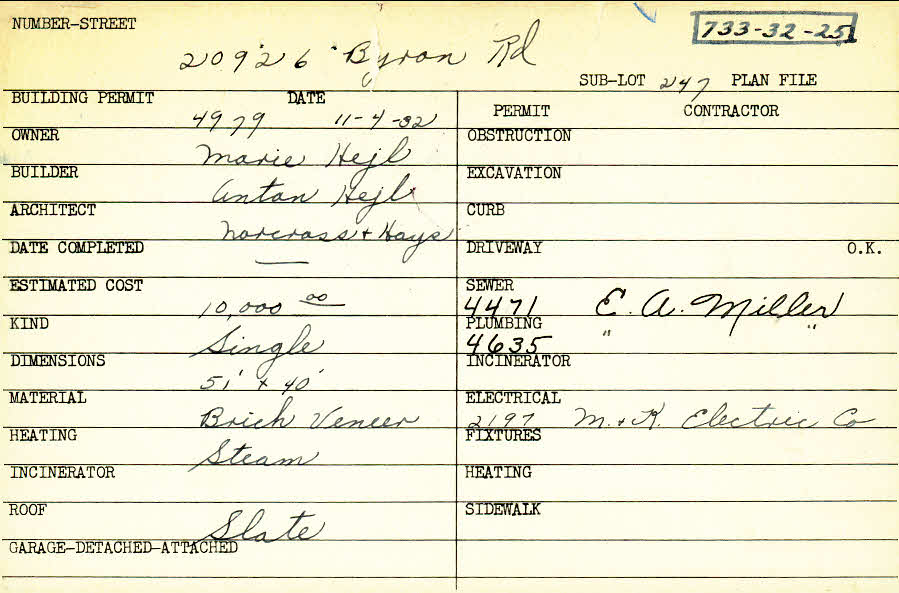 NUMBER-STREET
733-32-25
20926 Byron Rd
SUB-LOT 247 PLAN FILE
BUILDING PERMIT DATE
4979 11-4-32
OWNER
Marie Hejl
BUILDER
Anton Hejl
ARCHITECT
Norcross & Hays
DATE COMPLETED
—
ESTIMATED COST
10,000 00
KIND
Single
DIMENSIONS
51' x 40'
MATERIAL
Brick Veneer
HEATING
Steam
INCINERATOR
ROOF
Slate
GARAGE-DETACHED-ATTACHED
PERMIT CONTRACTOR
OBSTRUCTION
EXCAVATION
CURB
DRIVEWAY O.K.
SEWER
4471 E. A. Miller
PLUMBING
4635 " "
INCINERATOR
ELECTRICAL
2197 M. & K. Electric Co
FIXTURES
HEATING
SIDEWALK